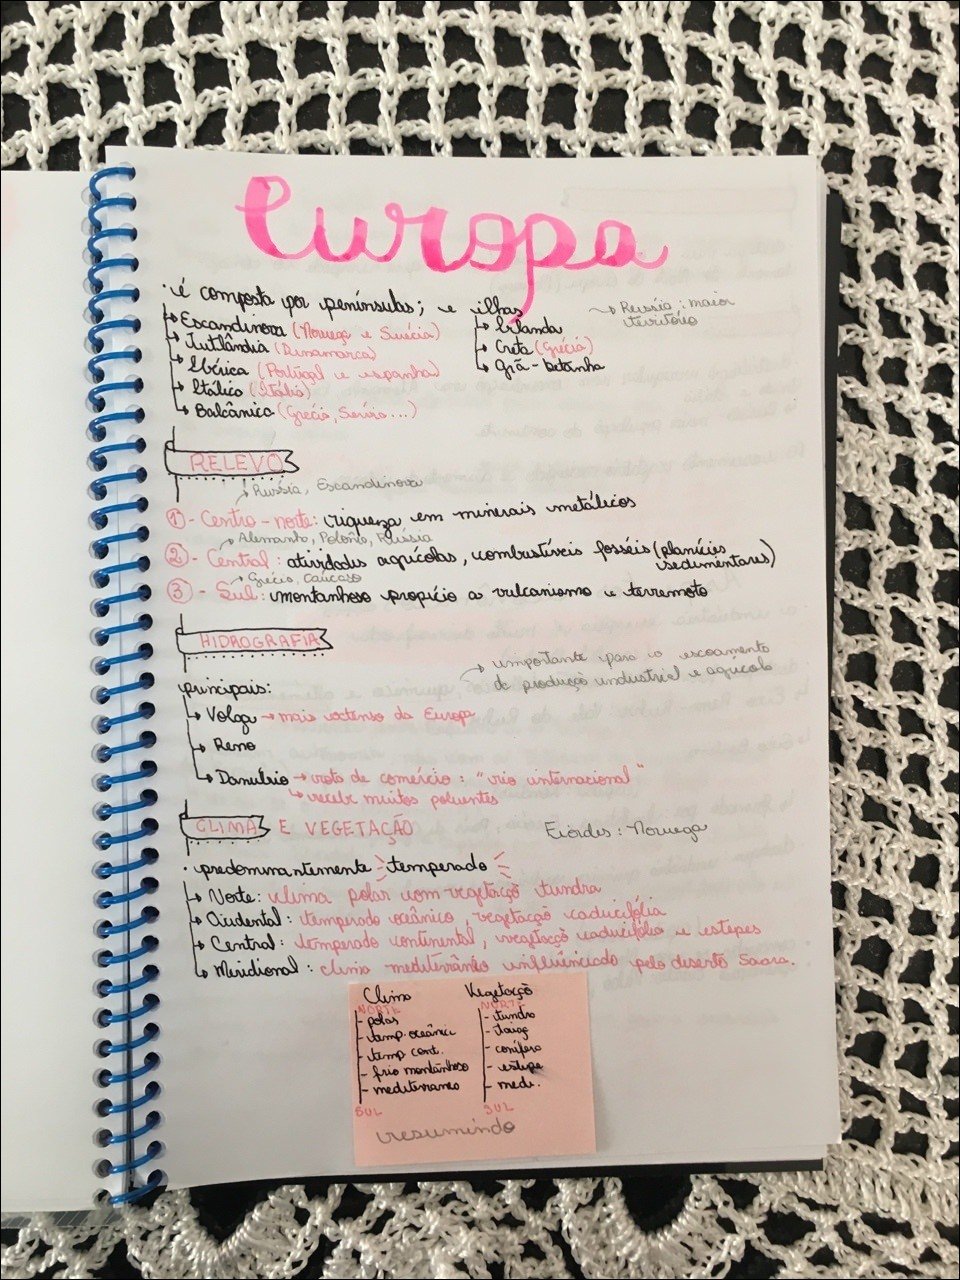 Europa
· é composta por penínsulas; e ilhas
→ Escandinava (Noruega e Suécia)
→ Jutlândia (Dinamarca)
→ Ibérica (Portugal e espanha)
→ Itálica (Itália)
→ Balcânica (Grécia, Sérvia...)
→ Irlanda
→ Creta (Grécia)
→ Grã-bretanha
→ Rússia: maior
território
RELEVO
→ Rússia, Escandinava
① - Centro-norte: riqueza em minerais metálicos
→ Alemanha, Polônia, Rússia
② - Central: atividades agrícolas, combustíveis fosséis (planícies
sedimentares)
→ Grécia, Caúcaso
③ - Sul: montanhoso propício a vulcanismo e terremoto
HIDROGRAFIA
→ importante para o escoamento
da produção industrial e agrícola
principais:
→ Volga → mais extenso da Europa
→ Reno
→ Danúbio → rota de comércio: "rio internacional"
↳ recebe muitos poluentes
CLIMA E VEGETAÇÃO
Fiórdes: Noruega
· predominantemente temperado
→ Norte: clima polar com vegetação tundra
→ Ocidental: temperado oceânico, vegetação caducifólia
→ Central: temperado continental, vegetação caducifólia e estepes
→ Meridional: clima mediterrâneo influênciado pelo deserto Saara.
Clima
NORTE
- polar
- temp. oceânic.
- temp cont.
- frio montanhoso
- mediterraneo
SUL
Vegetação
NORTE
- tundra
- taiga
- conífera
- estepe
- medi.
SUL
resumindo